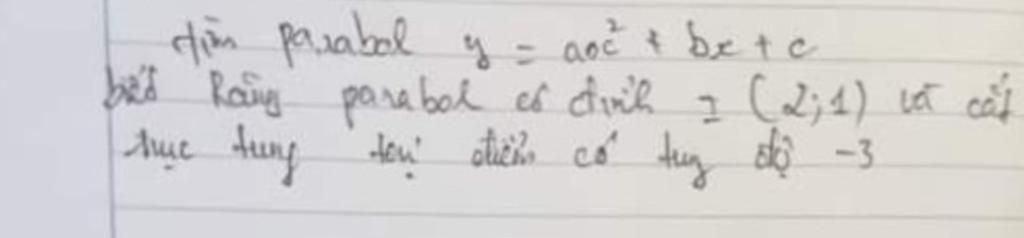 tìm parabol y = ax² + bx + c
biết Rằng parabol có đỉnh I (2;1) và cắt
trục tung tại điểm có tung độ -3